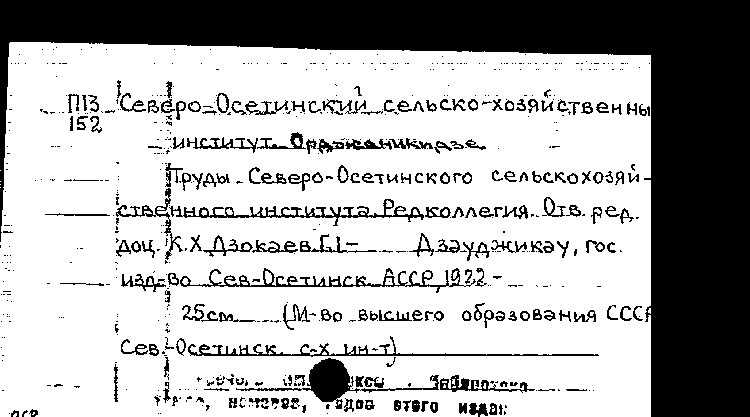 П13 Северо-Осетинский сельско-хозяйственны
152
институт. Орджоникидзе.
Труды Северо-Осетинского сельскохозяй-
ственного института. Редколлегия. Отв. ред.
доц. К.Х Дзокаев. Г.1- Дзауджикау, гос.
изд-во Сев-Осетинск. АССР, 1922-
25см (М-во высшего образования СССР
Сев.-Осетинск. с-х. ин-т)
номеров, годов этого издан